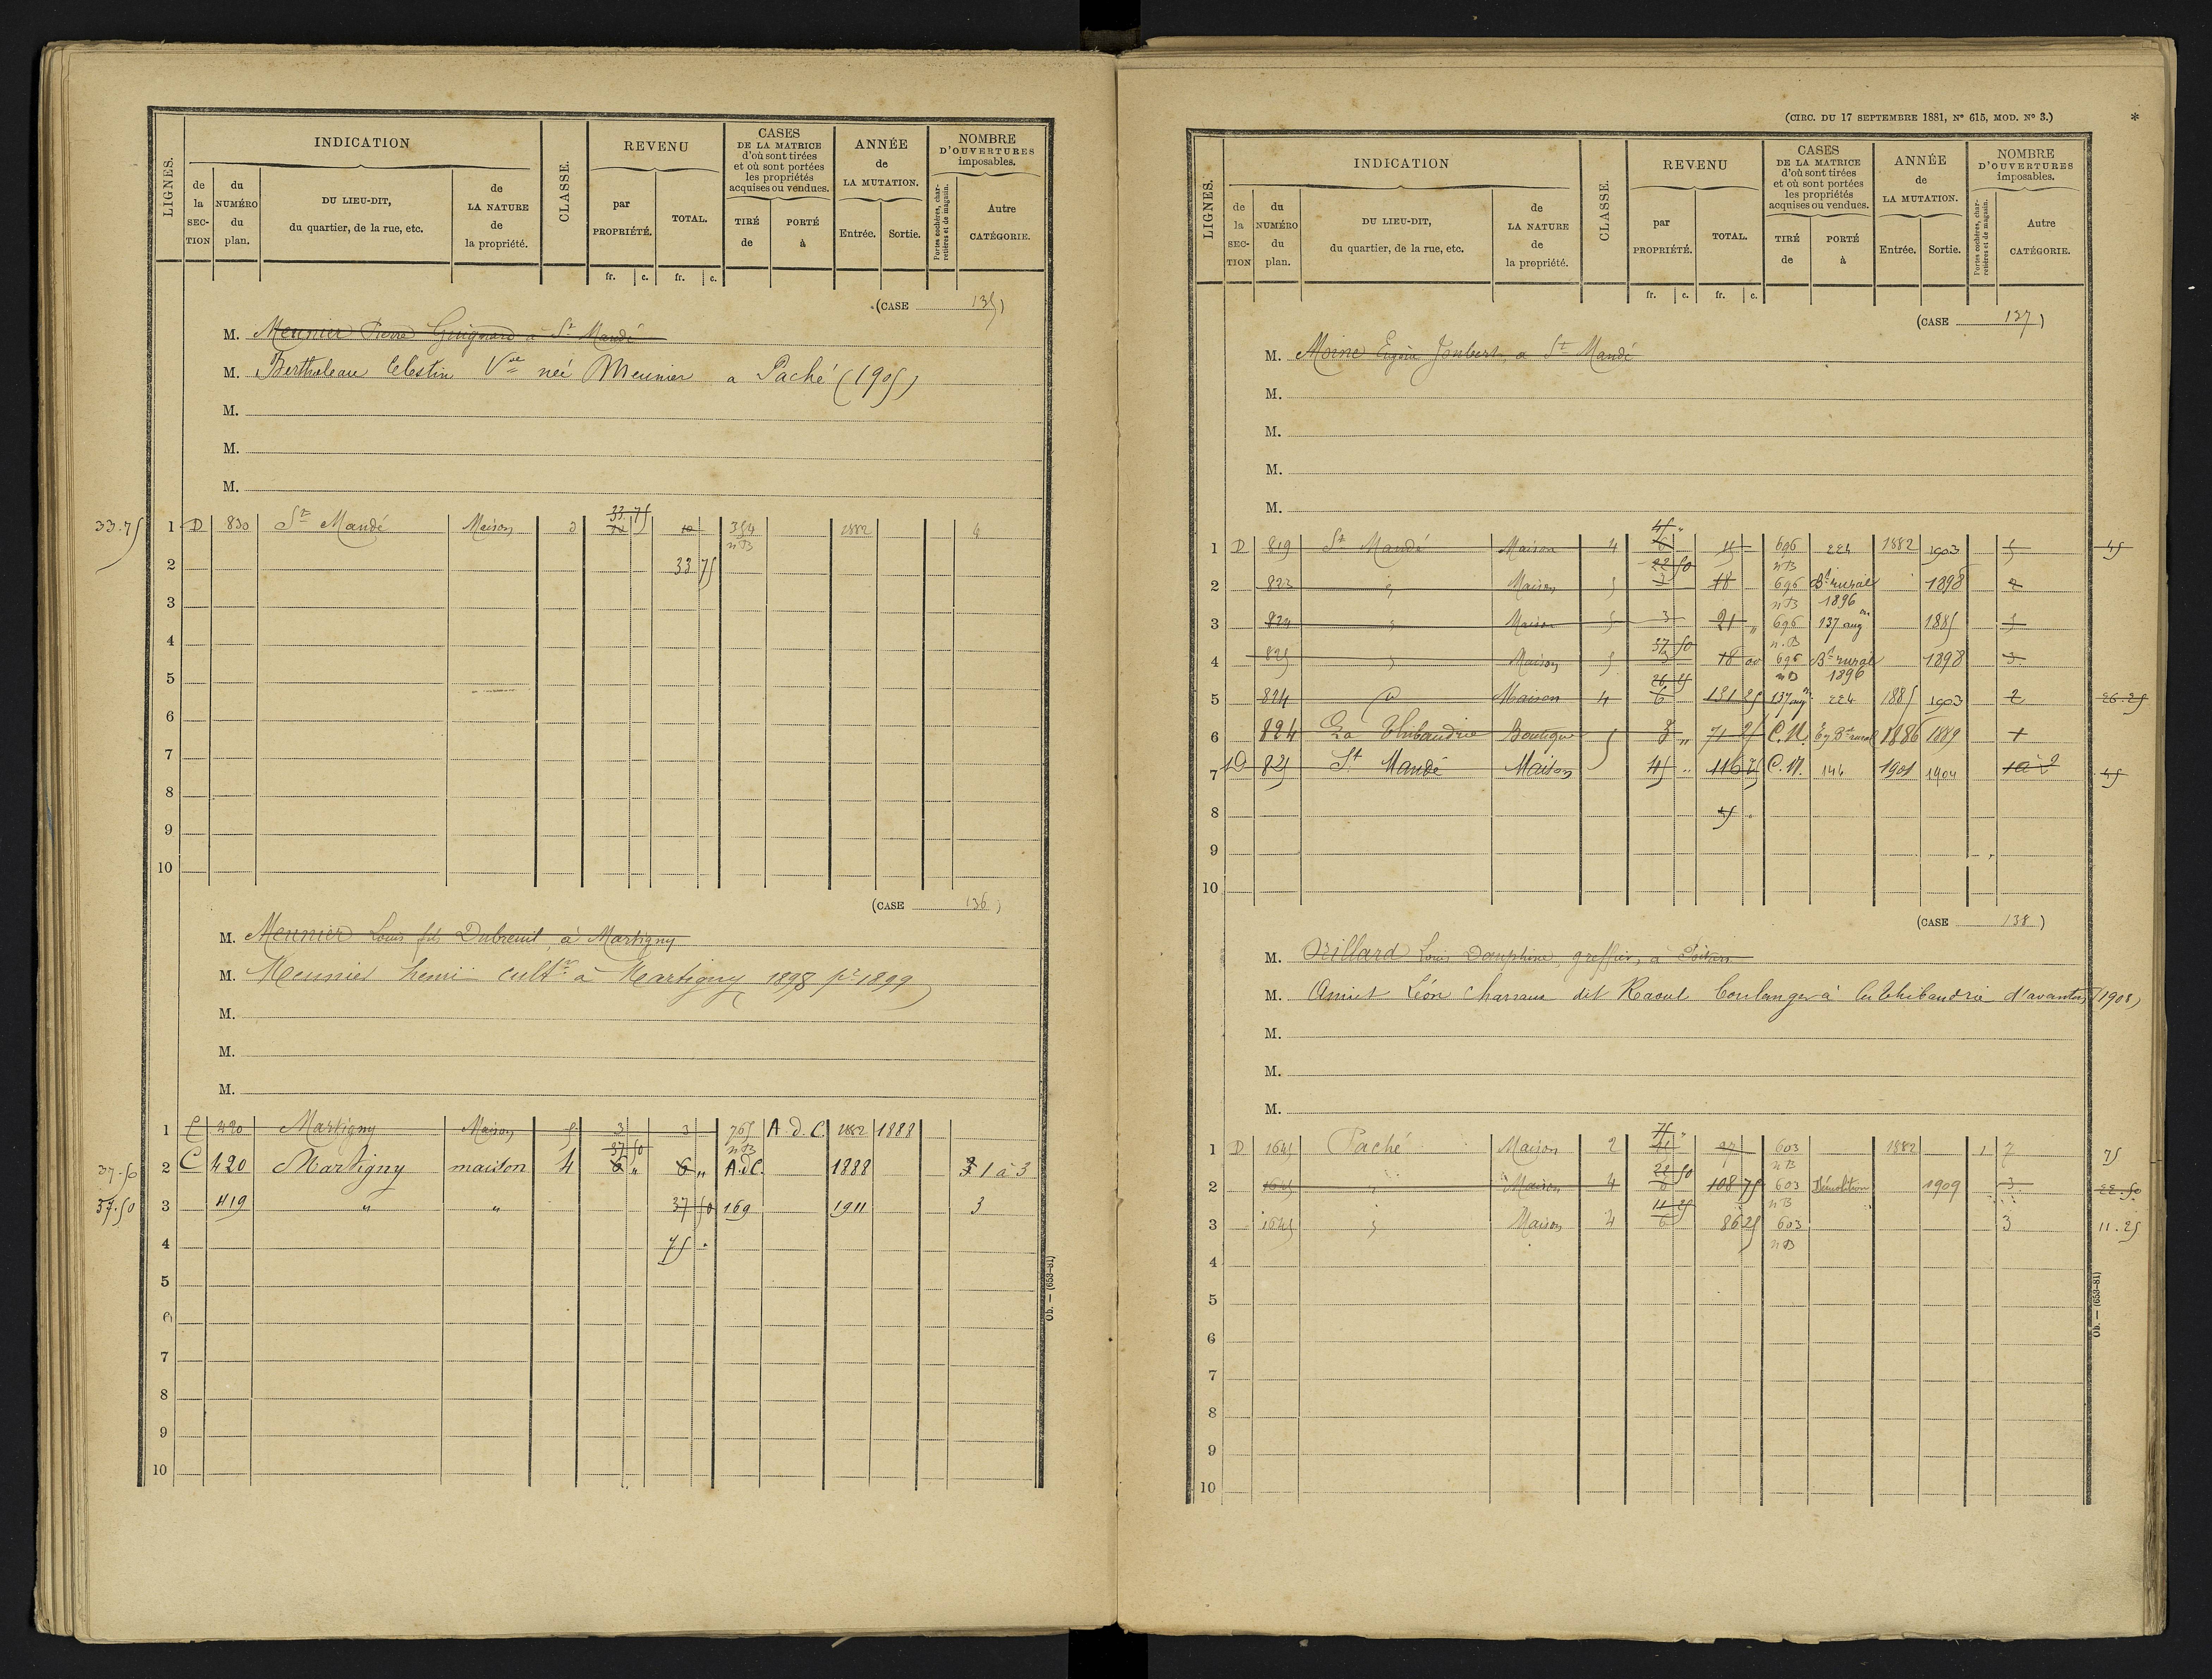 LIGNES.
INDICATION
de la SECTION
du NUMÉRO du plan.
DU LIEU-DIT, du quartier, de la rue, etc.
de LA NATURE de la propriété.
CLASSE.
REVENU
par PROPRIÉTÉ.
TOTAL.
CASES DE LA MATRICE d'où sont tirées et où sont portées les propriétés acquises ou vendues.
TIRÉ de
PORTÉ à
ANNÉE de LA MUTATION.
Entrée.
Sortie.
NOMBRE D'OUVERTURES imposables.
Portes cochères, charretières et de magasin.
Autre CATÉGORIE.
fr. c. fr. c.
(CASE 135)
M. Meunier Pierre Guignard a St Mandé
M. Bertholeau Celestin Vve neé Meunier a Paché (1905)
M.
M.
M.
33.75 1 D 830 St Mandé Maison 3 33 75 354 1882 4
nB
2 33 75
3
4
5
6
7
8
9
10
(CASE 136)
M. Meunier Louis fils Dubreuil, à Martigny
M. Meunier henri cultr à Martigny 1898 pr 1899
M.
M.
M.
1 C 420 Martigny Maison 5 3 3 765 A.d.C. 1882 1888
nB
37 50
37.50 2 C 420 Martigny maison 4 6 " 6 " A.d.C. 1888 3 1 à 3
37.50 3 419 " " 37 50 169 1911 3
4 75 "
5
6
7
8
9
10
Ob. — (653-81)
(CIRC. DU 17 SEPTEMBRE 1881, No 615, MOD. No 3.)
*
LIGNES.
INDICATION
de la SECTION
du NUMÉRO du plan.
DU LIEU-DIT, du quartier, de la rue, etc.
de LA NATURE de la propriété.
CLASSE.
REVENU
par PROPRIÉTÉ.
TOTAL.
CASES DE LA MATRICE d'où sont tirées et où sont portées les propriétés acquises ou vendues.
TIRÉ de
PORTÉ à
ANNÉE de LA MUTATION.
Entrée.
Sortie.
NOMBRE D'OUVERTURES imposables.
Portes cochères, charretières et de magasin.
Autre CATÉGORIE.
fr. c. fr. c.
(CASE 137)
M. Moine Eugène Joubert, a St Mandé
M.
M.
M.
M.
45 "
1 D 819 St Mandé Maison 4 6 15 696 224 1882 1903 5 45
22 50 nB
2 823 " Maison 5 3 18 696 Bt rural 1898 2
nB 1896
3 824 " Maison 5 3 21 " 696 137 aug on 1885 5
37 50 n.B
4 825 " Maison 5 3 18 00 696 Bt rural 1898 3
26 25 nB 1896
5 824 Maison 4 6 131 25 137 aug on 224 1885 1903 2 26.25
6 824 La Thibaudrie Boutique 5 3 " 71 25 C.N. Bt rural 1886 1889 1
7 D 825 St Mandé Maison 45 " 116 25 C.N. 144 1901 1904 1 à 2 45
8 45 "
9
10
(CASE 138)
M. Orillard Louis Dauphine, greffier, a
M. Amiet Léon Charraux dit Raoul boulanger à la Thibaudrie d'avanton (1908)
M.
M.
M.
75 "
1 D 1645 Paché Maison 2 603 1882 1 7 75
22 50 nB
2 1645 " Maison 4 6 108 75 603 Démolition 1909 3 22.50
11 25 nB
3 1645 " Maison 4 6 86 25 603 3 11.25
nB
4
5
6
7
8
9
10
Ob. — (653-81)